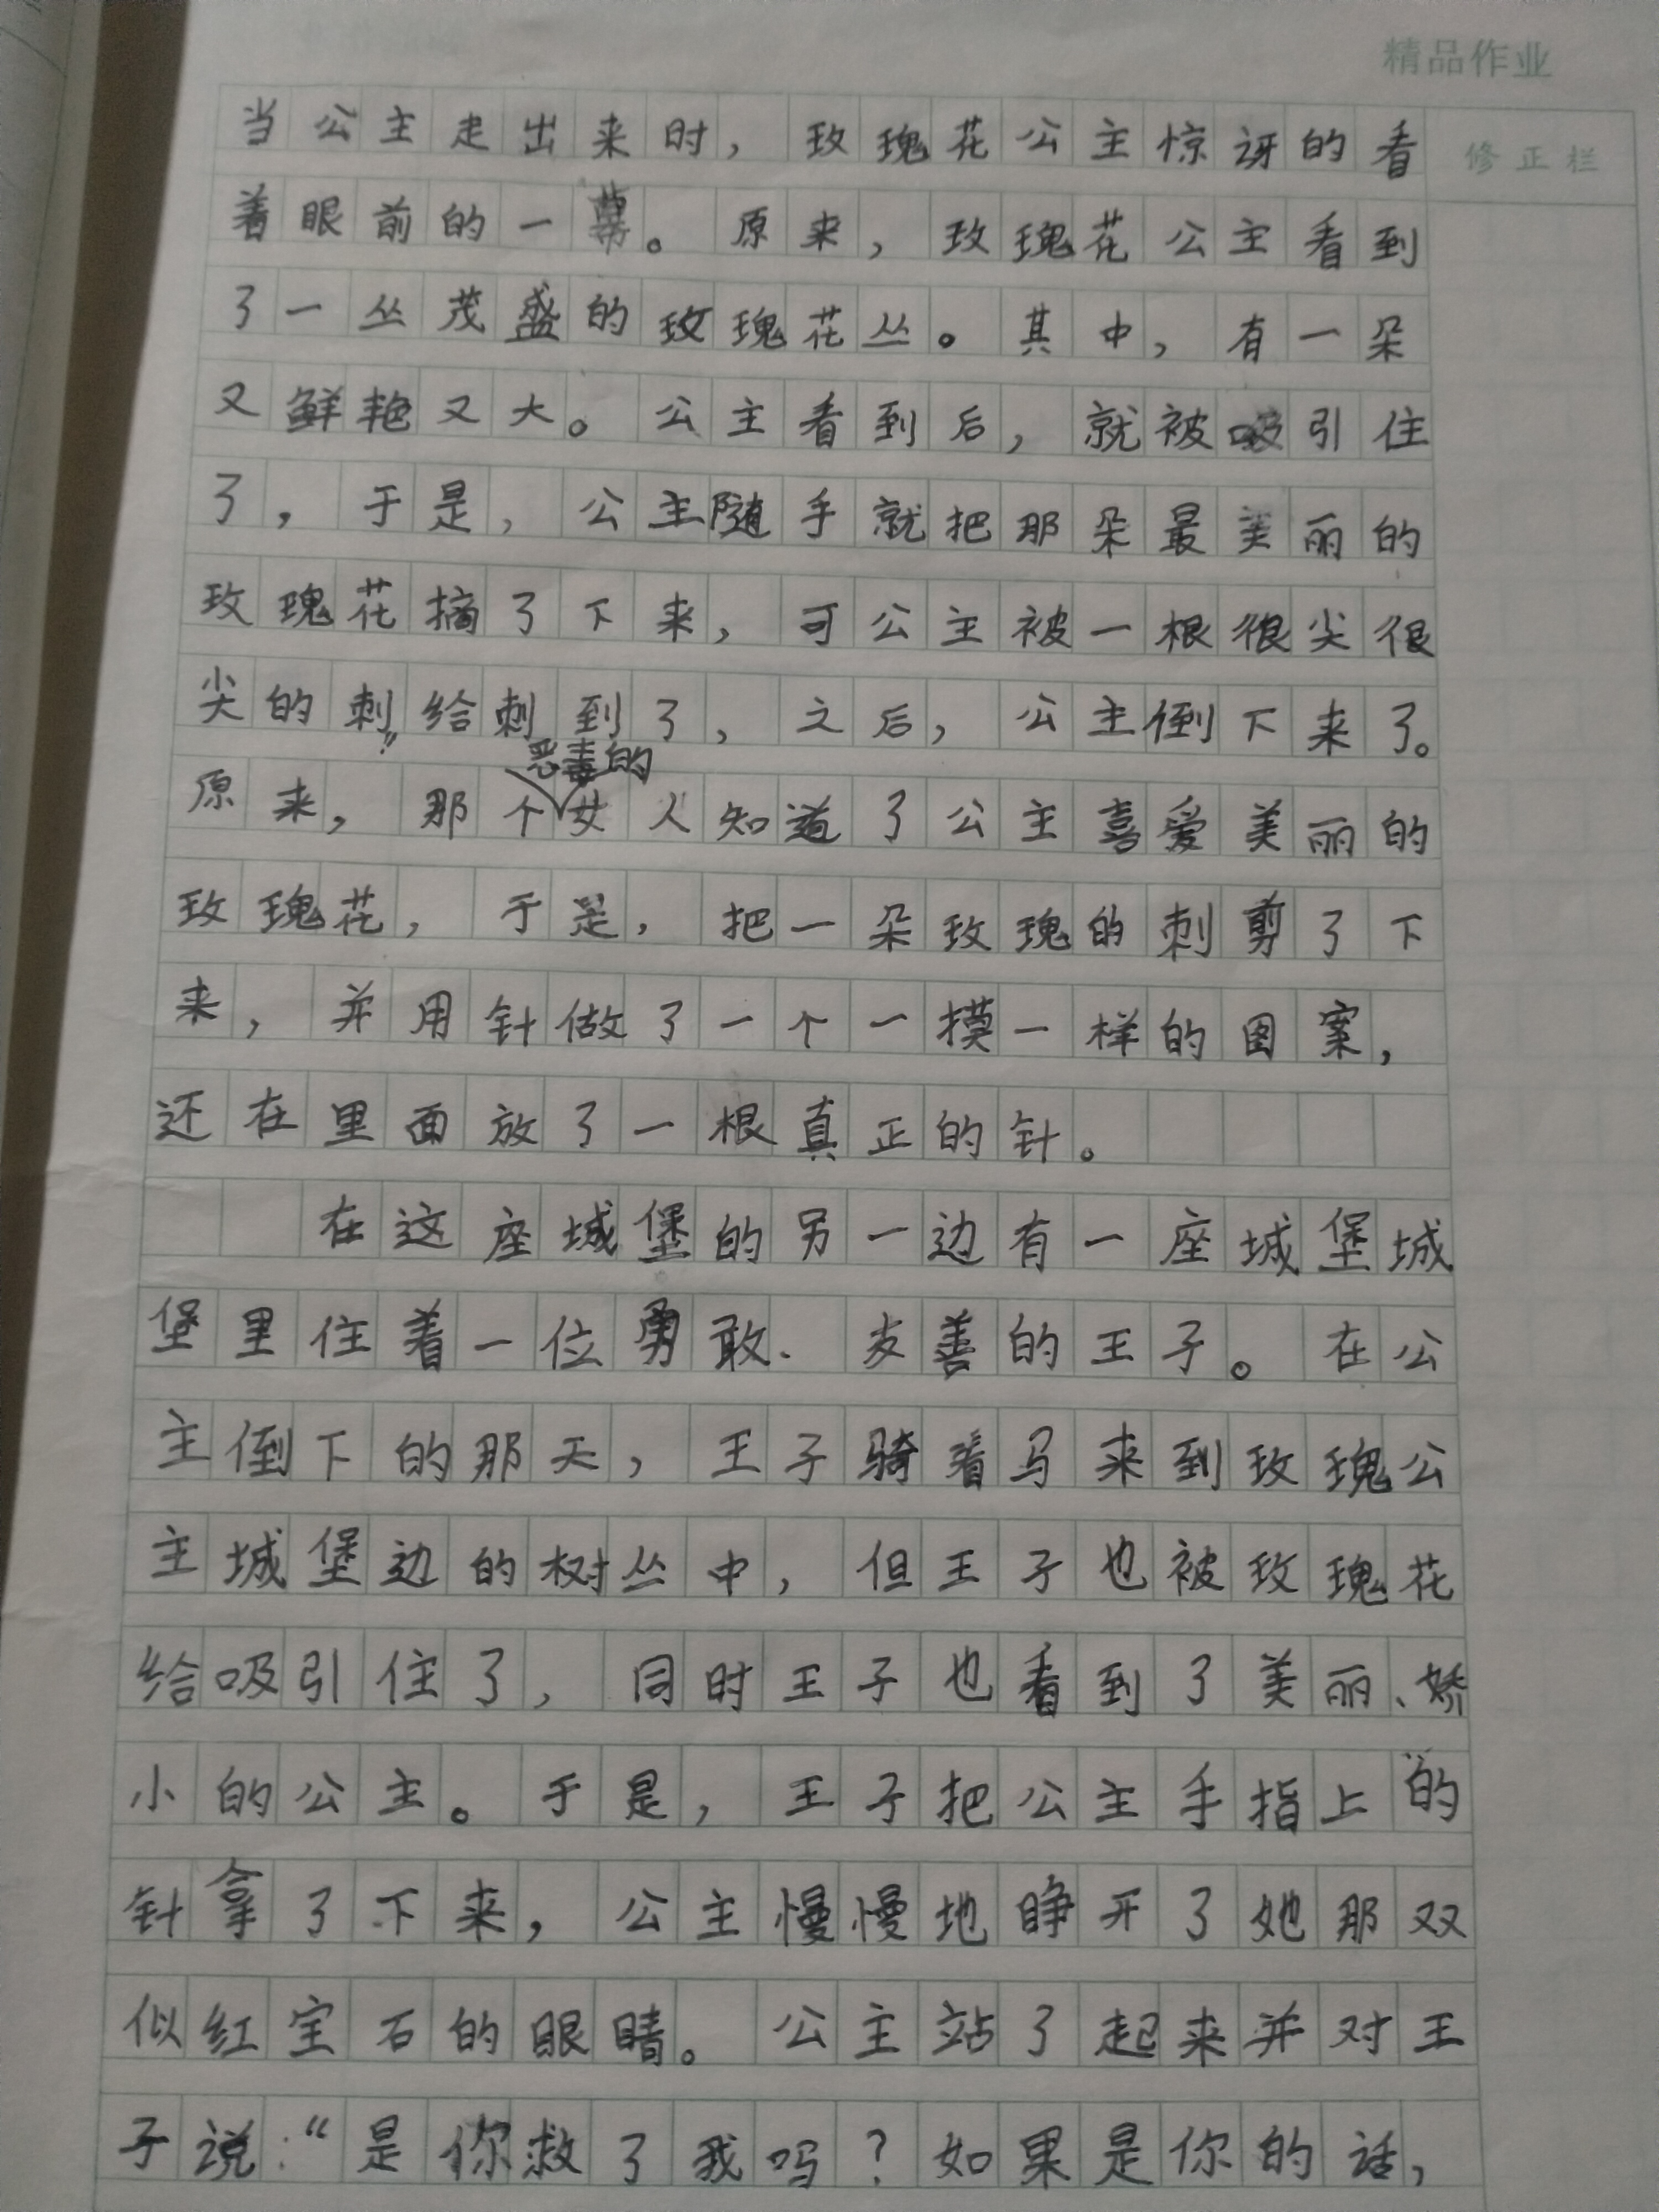 精品作业
修正栏
当公主走出来时，玫瑰花公主惊讶的看
着眼前的一幕。原来，玫瑰花公主看到
了一丛茂盛的玫瑰花丛。其中，有一朵
又鲜艳又大。公主看到后，就被吸引住
了，于是，公主随手就把那朵最美丽的
玫瑰花摘了下来，可公主被一根很尖很
尖的“刺”给刺到了，之后，公主倒下来了。
原来，那个恶毒的女人知道了公主喜爱美丽的
玫瑰花，于是，把一朵玫瑰的刺剪了下
来，并用针做了一个一摸一样的图案，
还在里面放了一根真正的针。
在这座城堡的另一边有一座城堡城
堡里住着一位勇敢、友善的王子。在公
主倒下的那天，王子骑着马来到玫瑰公
主城堡边的树丛中，但王子也被玫瑰花
给吸引住了，同时王子也看到了美丽、娇
小的公主。于是，王子把公主手指上的
针拿了下来，公主慢慢地睁开了她那双
似红宝石的眼睛。公主站了起来并对王
子说：“是你救了我吗？如果是你的话，